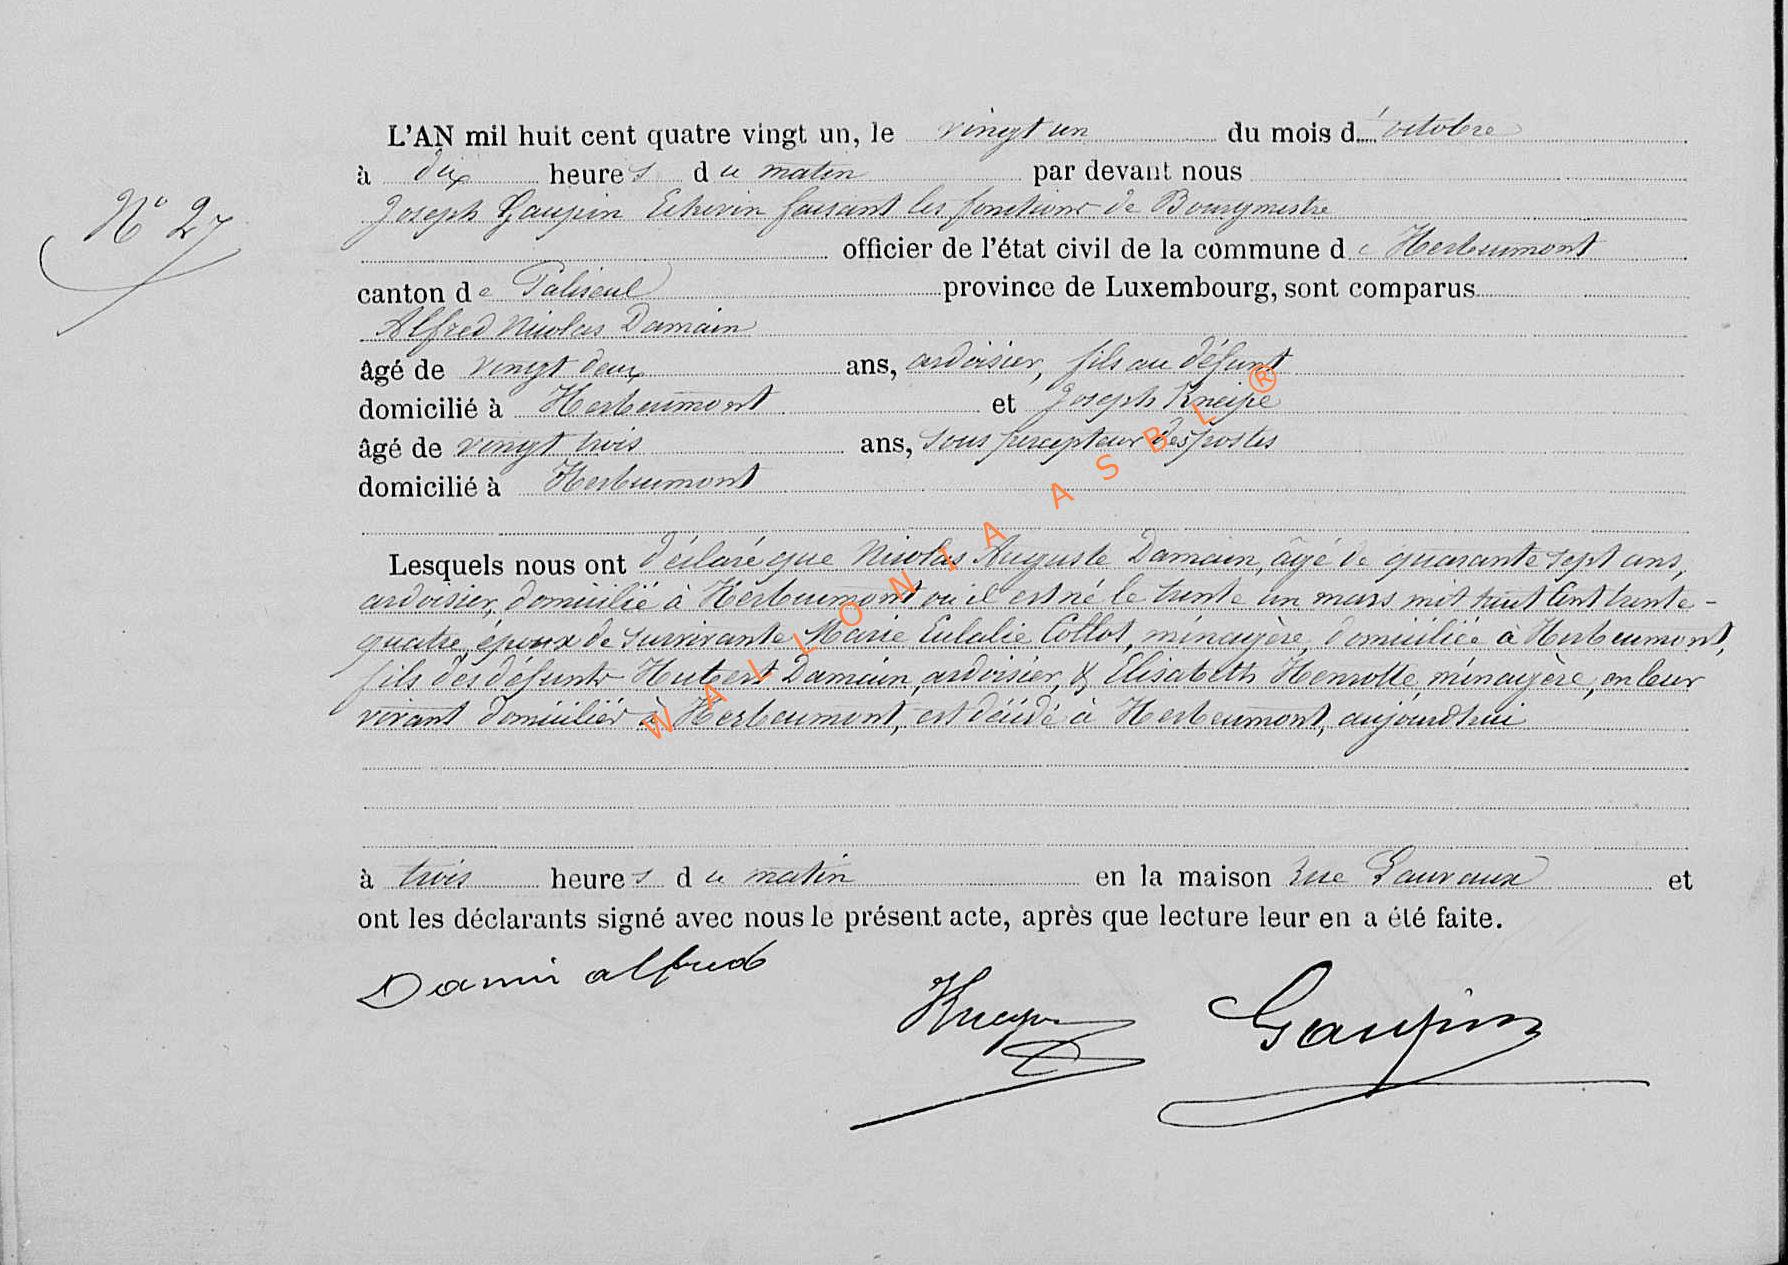 N° 27
L'AN mil huit cent quatre vingt un, le vingt un du mois d'octobre
à dix heures du matin par devant nous
Joseph Gaupin Echevin faisant les fonctions de Bourgmestre
officier de l'état civil de la commune de Herbeumont
canton de Paliseul province de Luxembourg, sont comparus
Alfred Nicolas Damain
âgé de vingt deux ans, ardoisier, fils au défunt
domicilié à Herbeumont et Joseph Kneipe
âgé de vingt trois ans, sous percepteur des postes
domicilié à Herbeumont
Lesquels nous ont déclaré que Nicolas Auguste Damain, âgé de quarante sept ans,
ardoisier, domicilié à Herbeumont où il est né le trente un mars mil huit cent trente-
quatre, époux de survivante Marie Eulalie Collot, ménagère, domiciliée à Herbeumont,
fils des défunts Hubert Damain, ardoisier, & Elisabeth Henrotte, ménagère, en leur
vivant domiciliés à Herbeumont, est décédé à Herbeumont, aujourd'hui
à trois heures du matin en la maison rue et
ont les déclarants signé avec nous le présent acte, après que lecture leur en a été faite.
Damin alfred
Kneipe Gaupin
WALLONIA ASBL ®